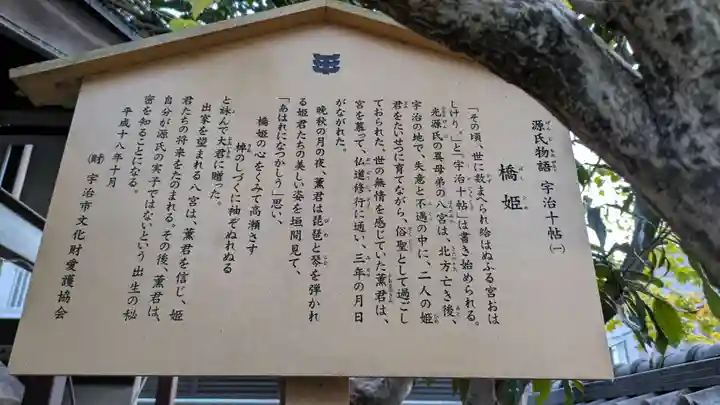 源氏物語 宇治十帖㈠
橋姫
「その頃、世に数まへられ給はぬふる宮おは
しけり。」と「宇治十帖」は書き始められる。
光源氏の異母弟の八宮は、北方亡き後、
宇治の地で、失意と不遇の中に、二人の姫
君をたいせつに育てながら、俗聖として過ごし
ておられた。世の無情を感じていた薫君は、
宮を慕って、仏道修行に通い、三年の月日
がながれた。
晩秋の月の夜、薫君は琵琶と琴を弾かれ
る姫君たちの美しい姿を垣間見て、
「あはれになつかしう」思い、
橋姫の心をくみて高瀬さす
棹のしづくに袖ぞぬれぬる
と詠んで大君に贈った。
出家を望まれる八宮は、薫君を信じ、姫
君たちの将来をたのまれる。その後、薫君は、
自分が源氏の実子ではないという出生の秘
密を知ることになる。
平成十八年十月
㈶宇治市文化財愛護協会